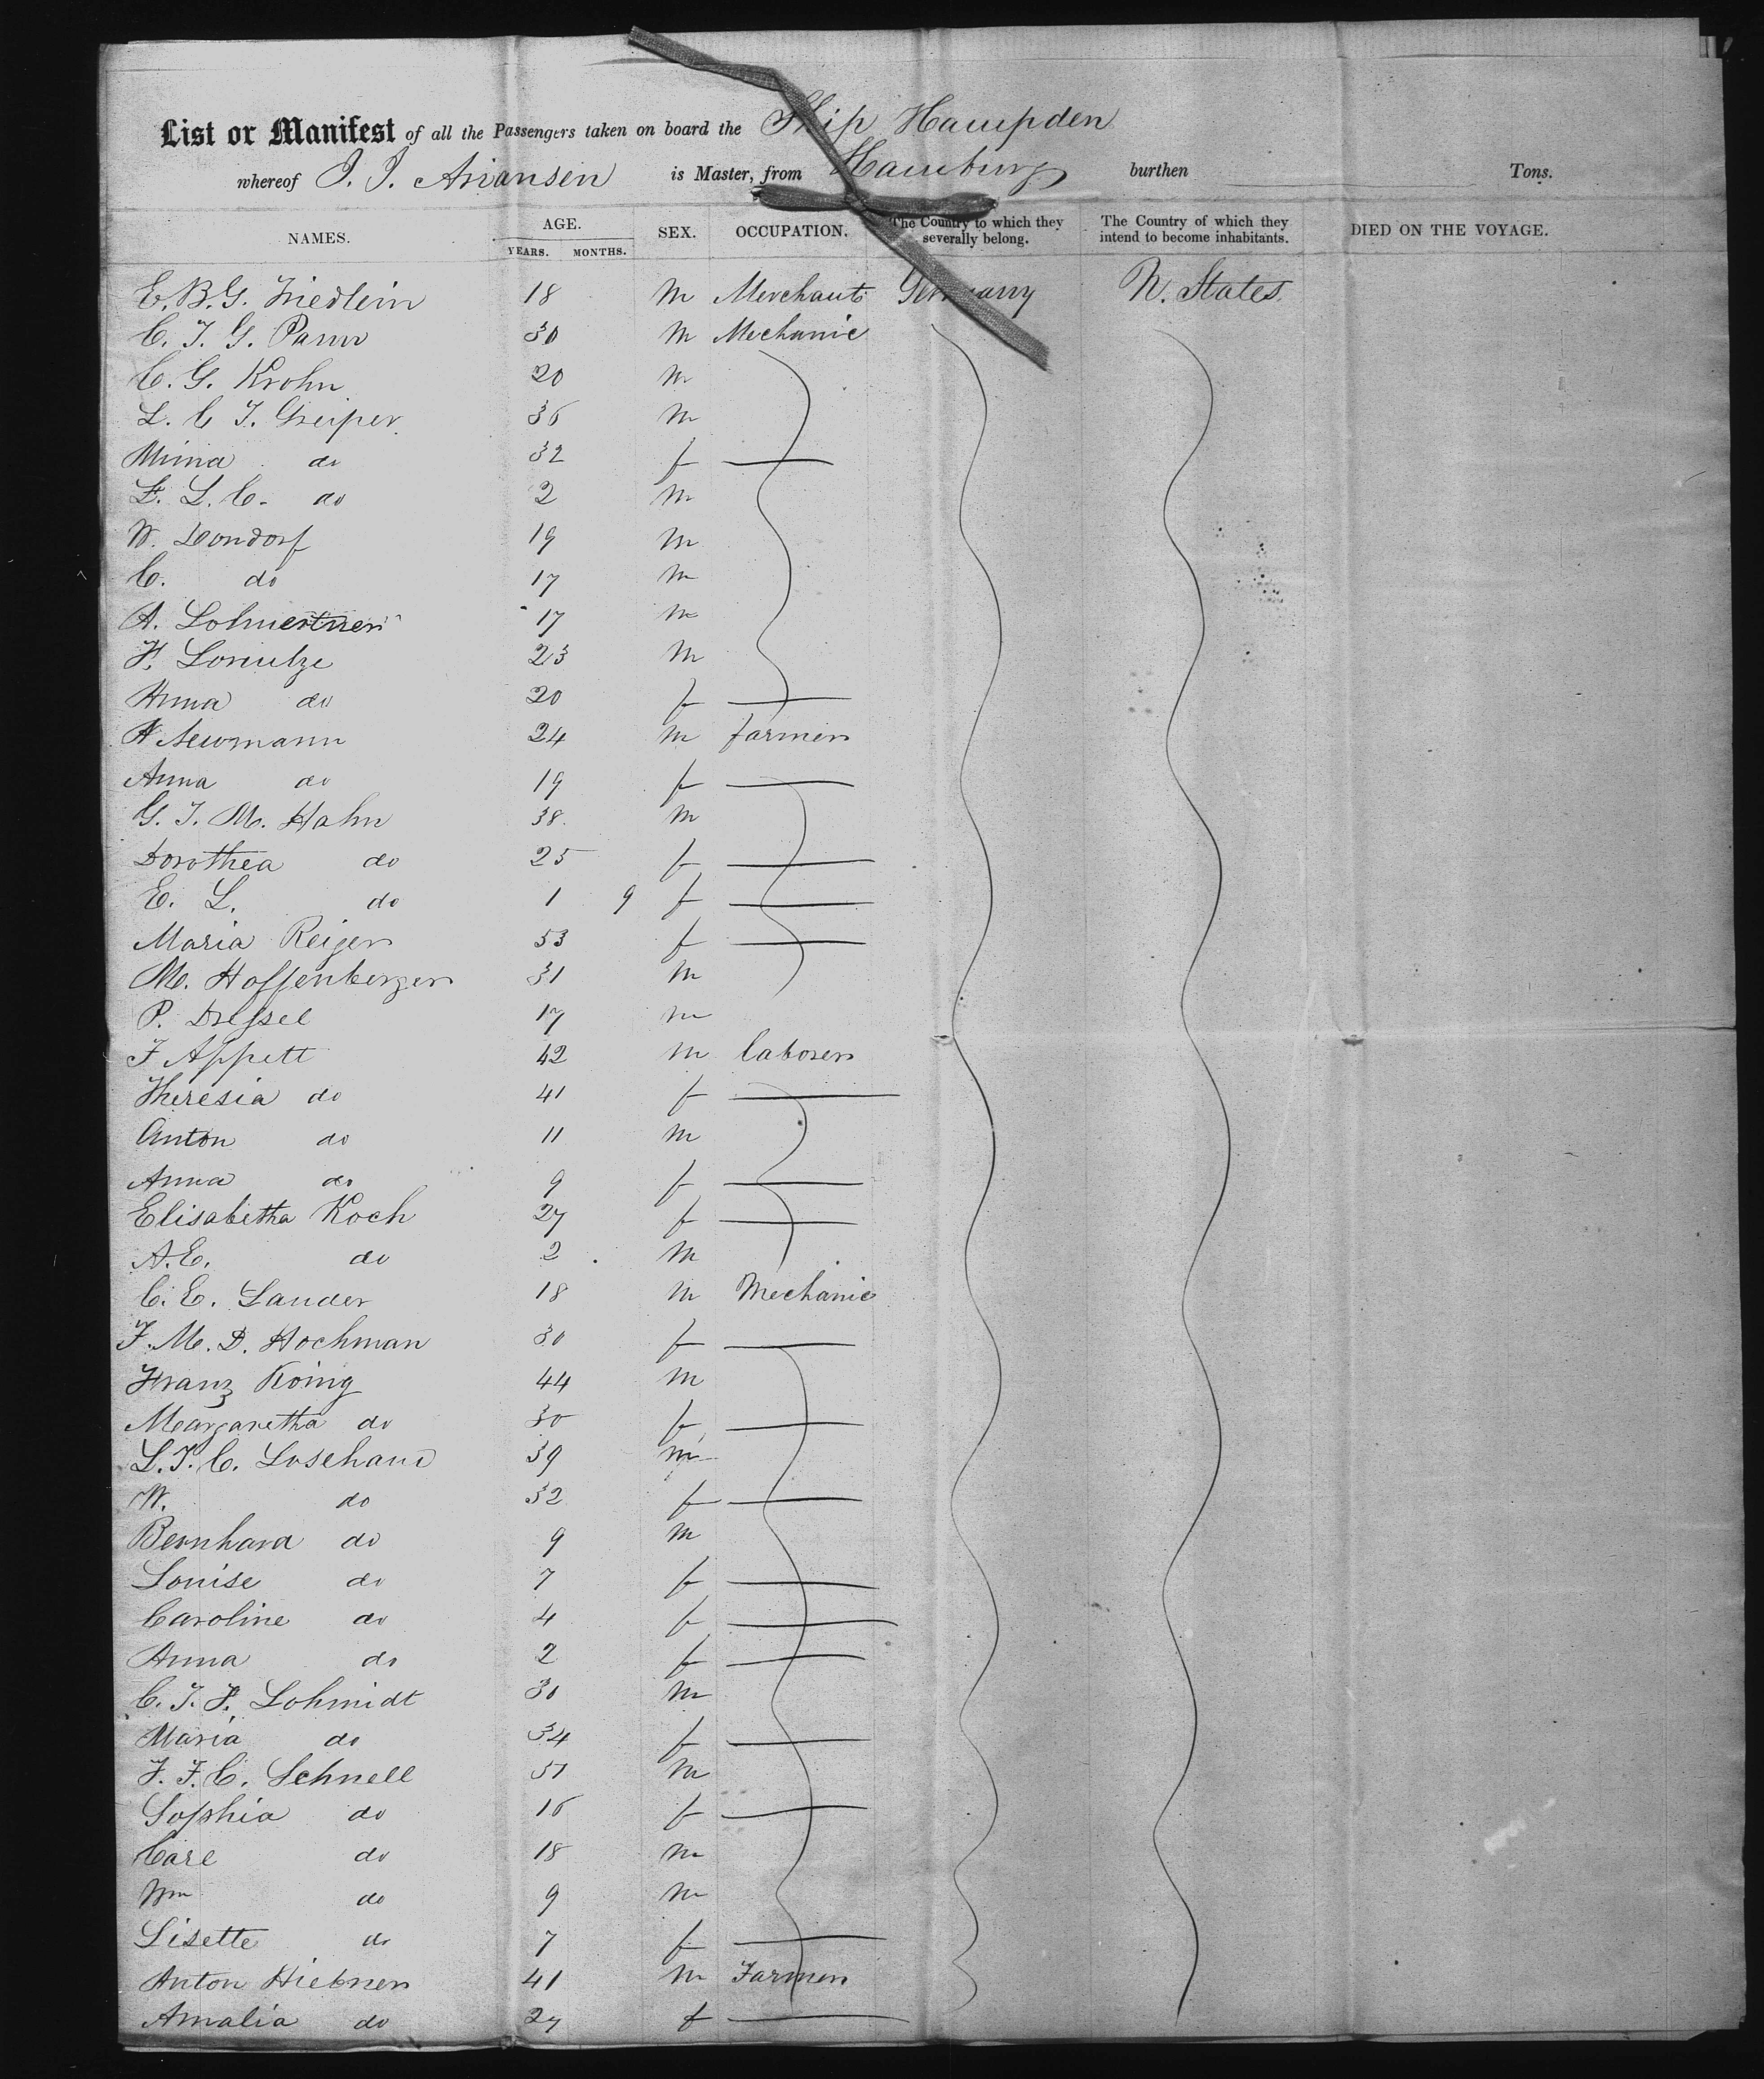 List or Manifest of all the Passengers taken on board the Ship Hampden
whereof J. J. Ariansen is Master, from Hamburg burthen Tons.
NAMES. AGE. YEARS. MONTHS. SEX. OCCUPATION. The Country to which they severally belong. The Country of which they intend to become inhabitants. DIED ON THE VOYAGE.
E. B. G. Friedlein 18 m Merchant Germany U. States
C. J. G. 30 m Mechanic
C. G. Krohn 20 m
L. C J. Greiper 36 m
Mina do 32 f
F. L. C. do 2 m
W. Dondorf 19 m
C. do 17 m
A. 17 m
F. Lorentze 23 m
Anna do 20 f
H Neumann 24 m farmer
Anna do 19 f
G. J. M. Hahn 38 m
Dorothea do 25 f
E. L. do 1 9 f
Maria Reiger 53 f
M. Hoffenberger 31 m
P. Dressel 17 m
F Appett 42 m laborer
Theresia do 41 f
Anton do 11 m
Anna do 9 f
Elisabetha Koch 27 f
A. E. do 2 m
C. E. Lander 18 m Mechanic
F. M. D. Hochman 30 f
Franz König 44 m
Margaretha do 30 f
L. J. C. Losehand 39 m
W. do 32 f
Bernhard do 9 m
Louise do 7 f
Caroline do 4 f
Anna do 2 f
C. J. F. Schmidt 30 m
Maria do 34 f
J. F. C. Schnell 51 m
Sophia do 16 f
Carl do 18 m
Wm do 9 m
Lisette do 7 f
Anton Hiebner 41 m Farmer
Amalia do 27 f